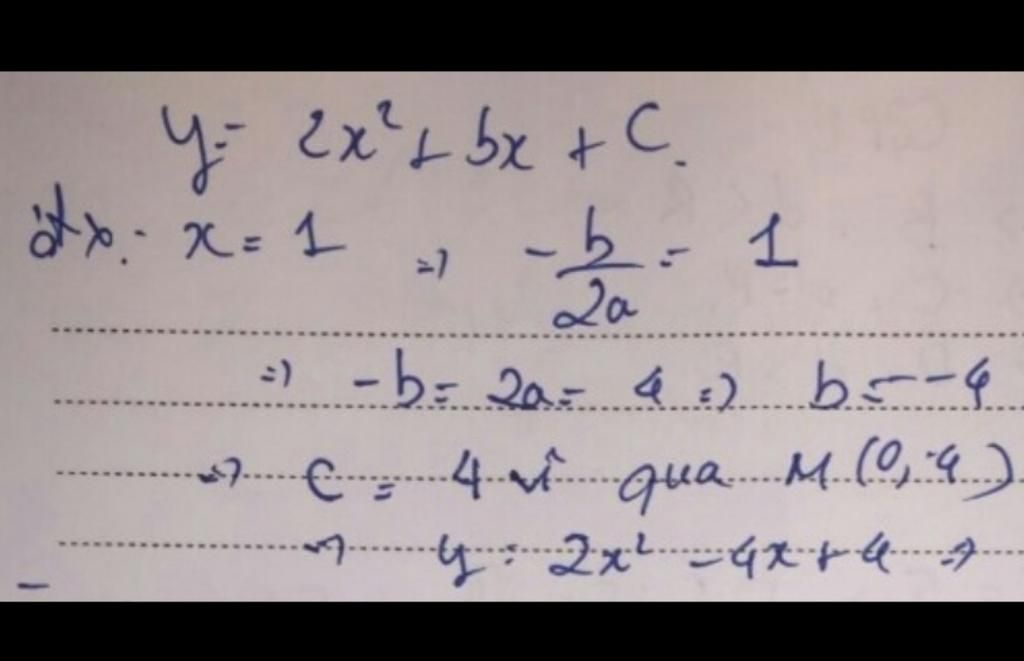 y = 2x² + bx + C.
đtx: x = 1 => -b/2a = 1
=> -b = 2a = 4 => b = -4
=> C = 4 vì qua M(0, -4)
=> y = 2x² - 4x + 4 =>